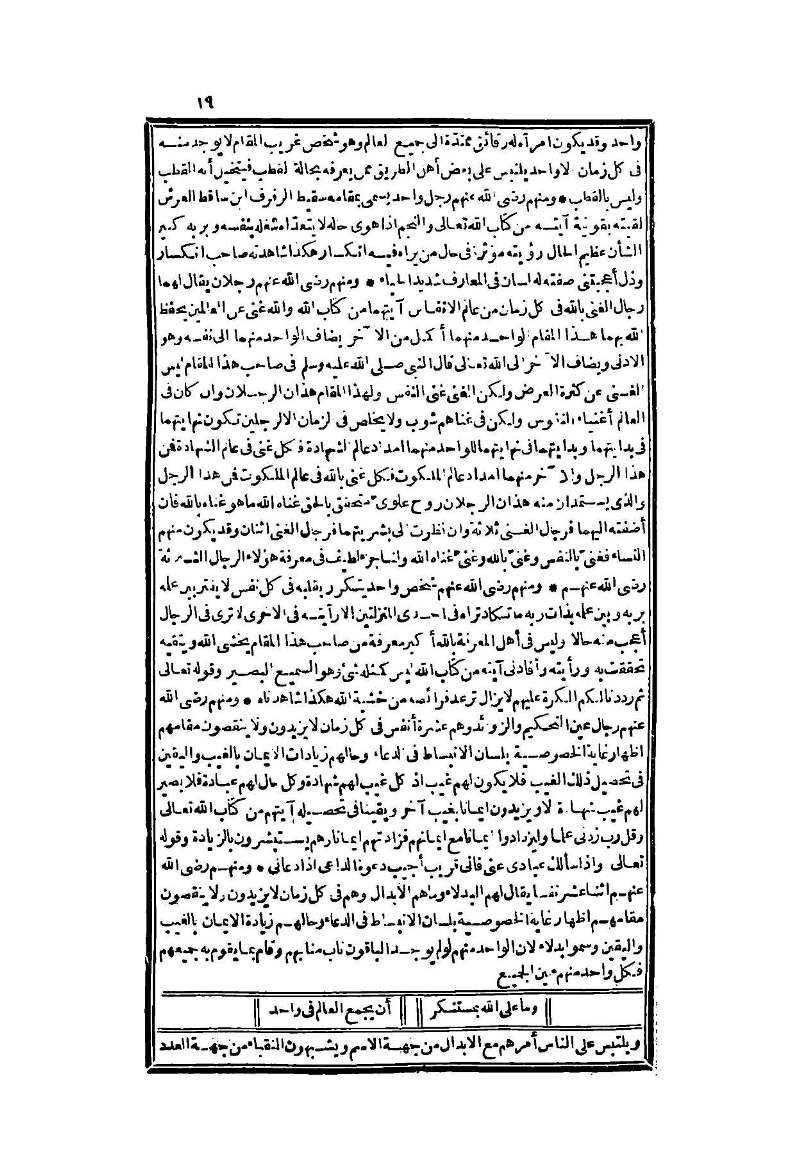 ١٩
واحد وقد يكون امرأة له رقائق ممتدة الى جميع العالم وهو شخص غريب المقام لا يوجد منه
فى كل زمان الا واحد يلتبس على بعض أهل الطريق ممن يعرفه بحالة القطب فيتخيل أنه القطب
وليس بالقطب • ومنهم رضى الله عنهم رجل واحد يسمى بمقامه سقيط الرفرف ابن ساقط العرش
لقيته بقونية آيته من كتاب الله تعالى والنجم اذا هوى حاله لا يتعداه شغله بنفسه وبربه كبير
الشأن عظيم الحال رؤيته مؤثرة فى حال من يراه فيه انكسار هكذا شاهدته صاحب انكسار
وذل أعجبتنى صفته له لسان فى المعارف شديد الحياء • ومنهم رضى الله عنهم رجلان يقال لهما
رجال الغنى بالله فى كل زمان من عالم الانفاس آيتهما من كتاب الله والله غنى عن العالمين يحفظ
الله بهما هذا المقام الواحد منهما أكمل من الآخر يضاف الواحد منهما الى نفسه وهو
الادنى ويضاف الآخر الى الله تعالى قال النبى صلى الله عليه وسلم فى صاحب هذا المقام ليس
الغنى عن كثرة العرض ولكن الغنى غنى النفس ولهذا المقام هذان الرجلان وان كان فى
العالم أغنياء النفوس ولكن فى غناهم شوب ولا يخلص فى الزمان الا لرجلين تكون نهايتهما
فى بدايتهما وبدايتهما فى نهايتهما للواحد منهما امداد عالم الشهادة فكل غنى فى عالم الشهادة فمن
هذا الرجل والآخر منهما امداد عالم الملكوت فكل غنى بالله فى عالم الملكوت فمن هذا الرجل
والذى يستمدان منه هذان الرجلان روح علوى متحقق بالحق غناه الله ما هو غناه بالله فان
أضفته اليهما فرجال الغنى ثلاثة وان نظرت الى بشريتهما فرجال الغنى اثنان وقد يكون منهم
النساء فغنى بالنفس وغنى بالله وغنى غناه الله ولنا جزء لطيف فى معرفة هؤلاء الرجال الثلاثة
رضى الله عنهم • ومنهم رضى الله عنهم شخص واحد يتكرر بقلبه فى كل نفس لا يفتر بين علمه
بربه وبين علمه بذات ربه ما تكاد تراه فى احدى المنزلتين الا رأيته فى الاخرى لا ترى فى الرجال
أعجب منه حالا وليس فى أهل المعرفة بالله أكبر معرفة من صاحب هذا المقام يخشى الله ويتقيه
تحققت به ورأيته وأفادنى آيته من كتاب الله ليس كمثله شئ وهو السميع البصير وقوله تعالى
ثم رددنا لكم الكرة عليهم لا يزال ترعد فرائصه من خشية الله هكذا شاهدناه • ومنهم رضى الله
عنهم رجال عين التحكيم والزوائد وهم عشرة أنفس فى كل زمان لا يزيدون ولا ينقصون مقامهم
اظهار غاية الخصوصية بلسان الانبساط فى الدعاء وحالهم زيادات الايمان بالغيب واليقين
فى تحصيل ذلك الغيب فلا يكون لهم غيب اذ كل غيب لهم شهادة وكل حال لهم عبادة فلا يصير
لهم غيب شهادة الا ويزيدون ايمانا بغيب آخر ويقينا فى تحصيله آيتهم من كتاب الله تعالى
وقل رب زدنى علما وليزدادوا ايمانا مع ايمانهم فزادتهم ايمانا وهم يستبشرون بالزيادة وقوله
تعالى واذا سألك عبادى عنى فانى قريب أجيب دعوة الداعى اذا دعانى • ومنهم رضى الله
عنهم اثنا عشر نفسا يقال لهم البدلاء وما هم الابدال وهم فى كل زمان لا يزيدون ولا ينقصون
مقامهم اظهار غاية الخصوصية بلسان الانبساط فى الدعاء وحالهم زيادة الايمان بالغيب
واليقين وسموا بدلاء لان الواحد منهم لو لم يوجد الباقون ناب منابهم وقام بما يقوم به جميعهم
فكل واحد منهم عين الجميع
وما على الله بمستنكر أن يجمع العالم فى واحد
ويلتبس على الناس أمرهم مع الابدال من جهة الاسم ويشبهون النقباء من جهة العدد